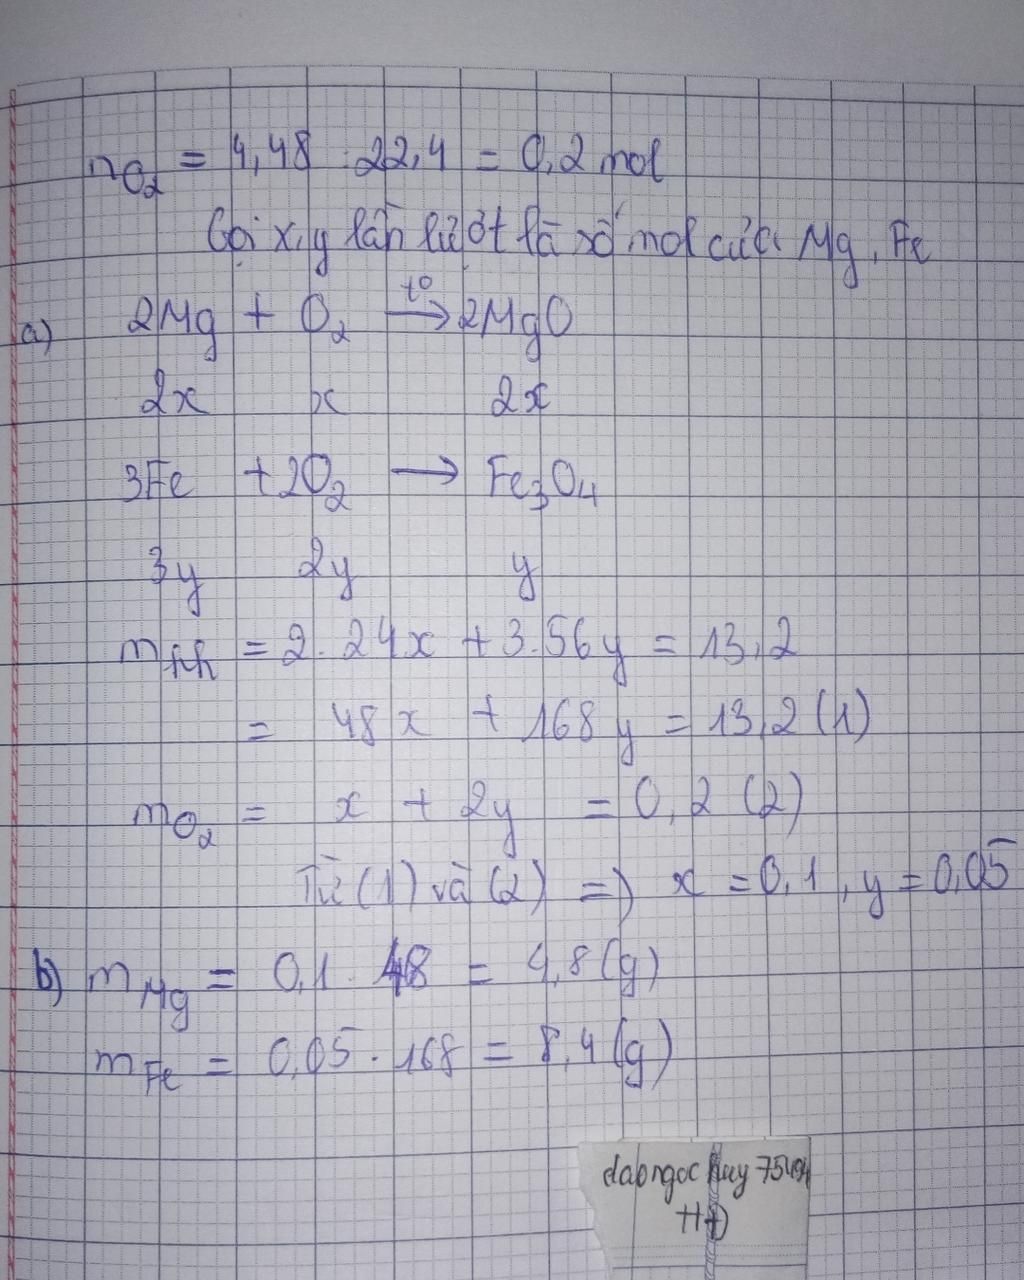 nO₂ = 4,48 : 22,4 = 0,2 mol
Gọi x,y lần lượt là số mol của Mg, Fe
a) 2Mg + O₂ t⁰→ 2MgO
2x x 2x
3Fe + 2O₂ → Fe₃O₄
3y 2y y
mhh = 2.24x + 3.56y = 13,2
= 48x + 168y = 13,2 (1)
mO₂ = x + 2y = 0,2 (2)
Từ (1) và (2) => x = 0,1, y = 0,05
b) mMg = 0,1 . 48 = 4,8 (g)
mFe = 0,05 . 168 = 8,4 (g)
daongoc huy